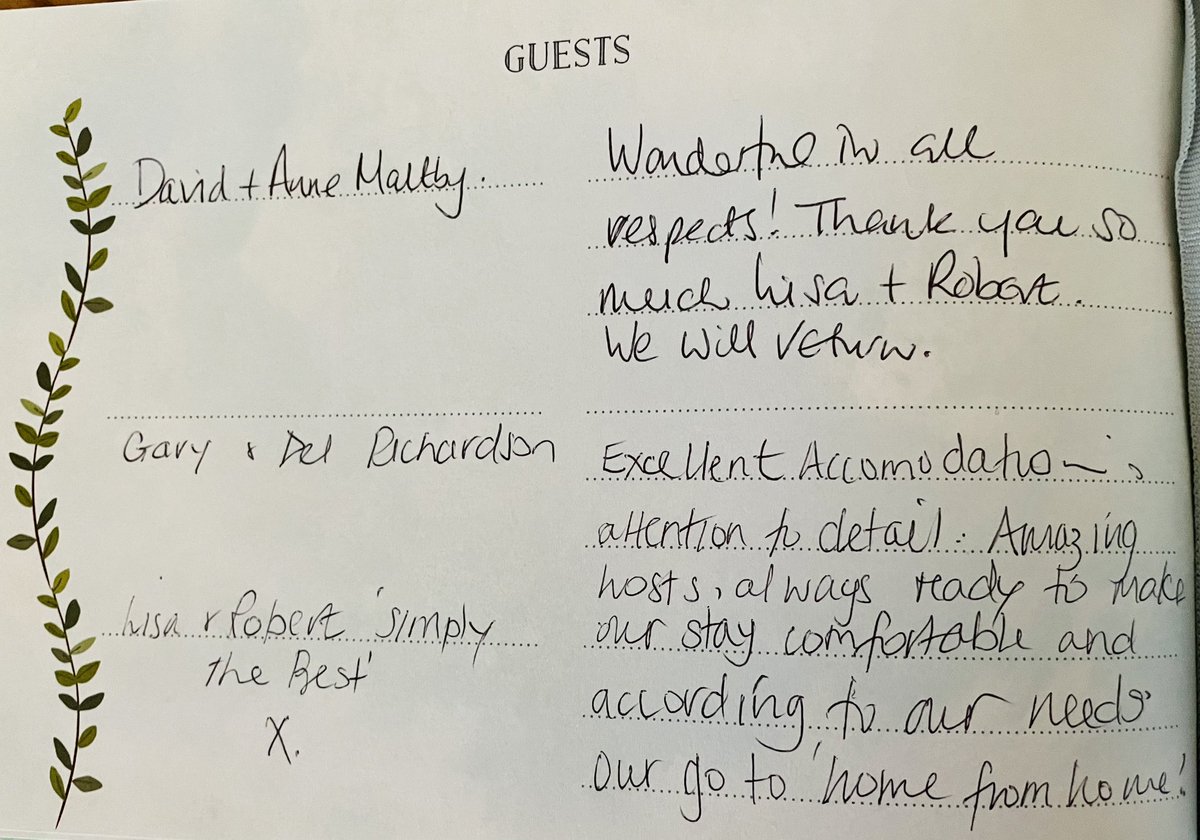 GUESTS
David + Anne Maltby.
Wonderful in all
respects! Thank you so
much Lisa + Robert.
We will return.
Gary & Del Richardson
Excellent Accomodation,
attention to detail. Amazing
hosts, always ready to make
our stay comfortable and
according to our needs
our go to 'home from home'.
Lisa & Robert 'simply
the Best'
X.